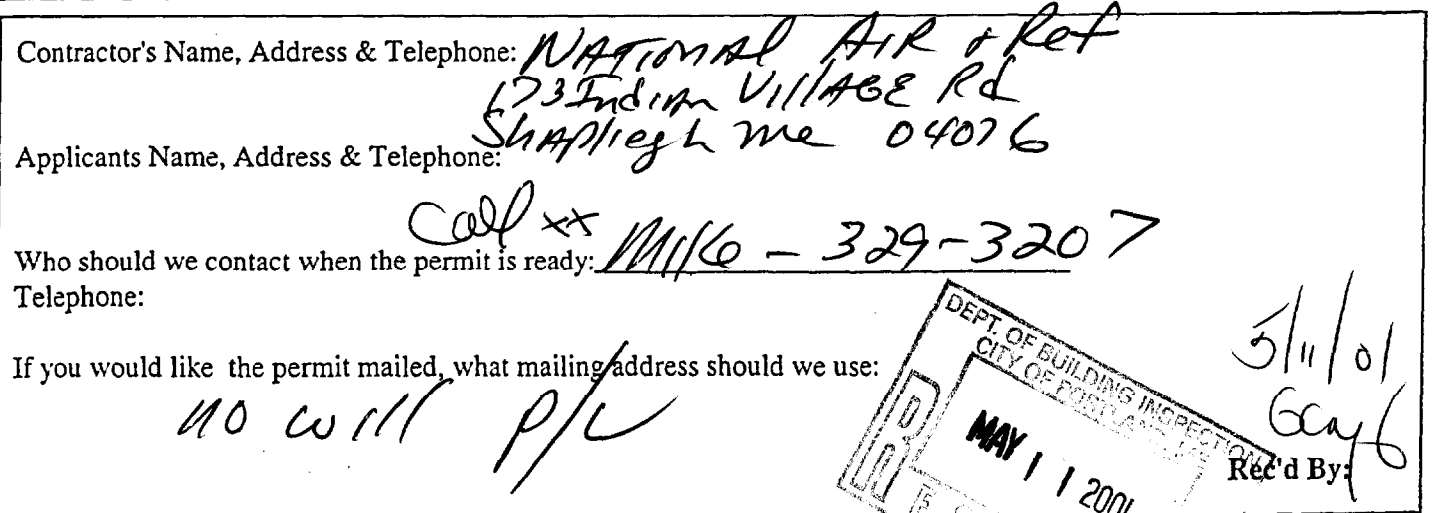 Contractor's Name, Address & Telephone: NATIONAL AIR & Ref
673 Indian VillAGE Rd
Shapliegh me 04076
Applicants Name, Address & Telephone:
Call xx
Who should we contact when the permit is ready: Mike - 329-3207
Telephone:
If you would like the permit mailed, what mailing address should we use:
no will p/u
DEPT. OF BUILDING INSPECTION
CITY OF PORTLAND, ME
MAY 11 2001
5/11/01
Rec'd By: